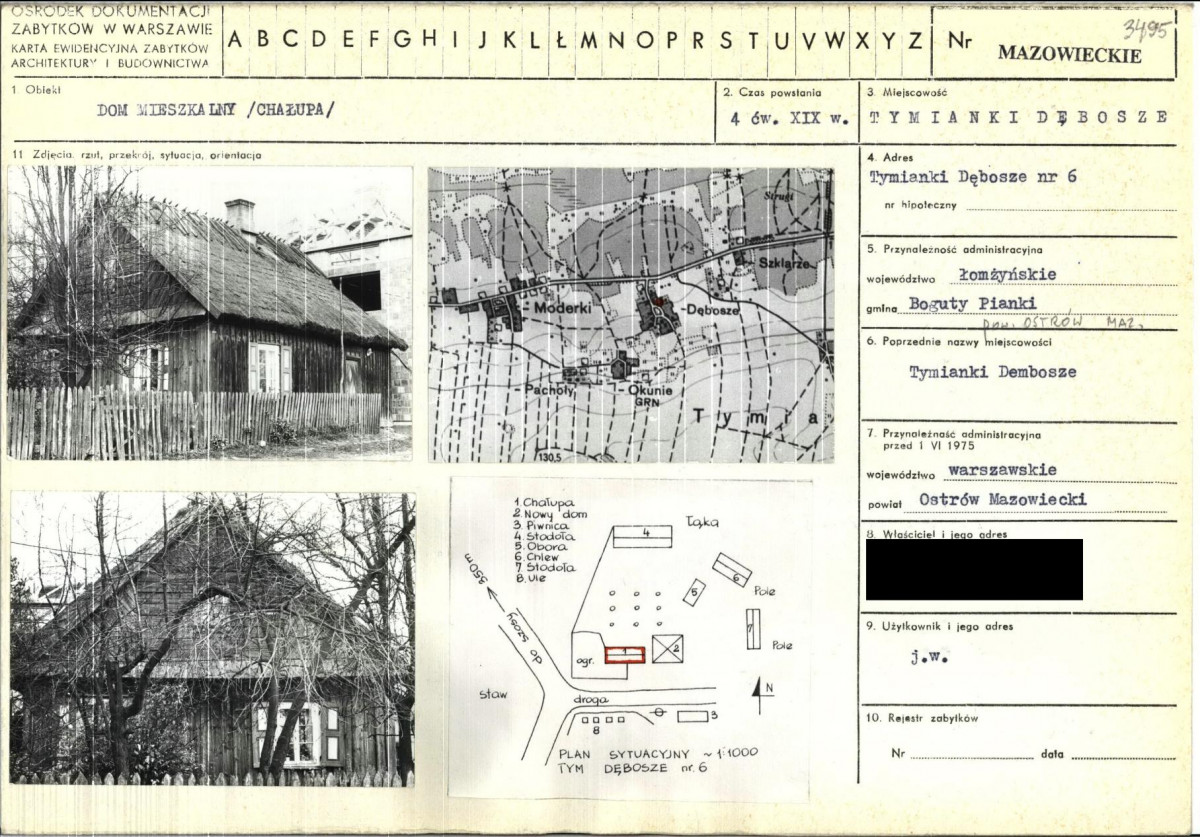 OŚRODEK DOKUMENTACJI
ZABYTKÓW W WARSZAWIE
KARTA EWIDENCYJNA ZABYTKÓW
ARCHITEKTURY I BUDOWNICTWA
A B C D E F G H I J K L Ł M N O P R S T U V W X Y Z
Nr
3495
MAZOWIECKIE
1. Obiekt
DOM MIESZKALNY /CHAŁUPA/
2. Czas powstania
4 ćw. XIX w.
3. Miejscowość
TYMIANKI DĘBOSZE
11 Zdjęcia, rzut, przekrój, sytuacja, orientacja
4. Adres
Tymianki Dębosze nr 6
nr hipoteczny
5. Przynależność administracyjna
województwo łomżyńskie
gmina Boguty Pianki
pow. OSTRÓW MAZ.
6. Poprzednie nazwy miejscowości
Tymianki Dembosze
7. Przynależność administracyjna
przed 1 VI 1975
województwo warszawskie
powiat Ostrów Mazowiecki
8. Właściciel i jego adres
9. Użytkownik i jego adres
j.w.
10. Rejestr zabytków
Nr data
Strugi
Szklarze
Moderki
Dębosze
Pachoły
Okunie
GRN
T y m i a
130,5
1. Chałupa
2. Nowy dom
3. Piwnica
4. Stodoła
5. Obora
6. Chlew
7 Stodoła
8. Ule
Łąka
4
6
5
Pole
7
Pole
350m
do szosy
ogr.
1
2
staw
droga
N
3
8
PLAN SYTUACYJNY ~ 1:1000
TYM DĘBOSZE nr. 6